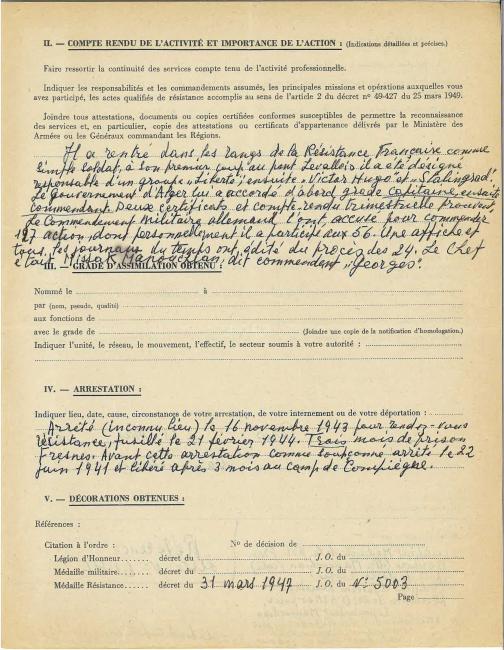 II. — COMPTE RENDU DE L'ACTIVITÉ ET IMPORTANCE DE L'ACTION : (Indications détaillées et précises.)
Faire ressortir la continuité des services compte tenu de l'activité professionnelle.
Indiquer les responsabilités et les commandements assumés, les principales missions et opérations auxquelles vous
avez participé, les actes qualifiés de résistance accomplis au sens de l'article 2 du décret n° 49-427 du 25 mars 1949.
Joindre tous attestations, documents ou copies certifiées conformes susceptibles de permettre la reconnaissance
des services et, en particulier, copie des attestations ou certificats d'appartenance délivrés par le Ministère des
Armées ou les Généraux commandant les Régions.
Il a rentré dans les rangs de la Résistance Française comme
simple soldat, à son premier coup au pont Levallois il a été désigné
responsable d'un groupe "Liberté", ensuite "Victor Hugo" et "Stalingrad".
Le gouvernement d'Alger lui a accordé d'abord grade Capitaine, ensuite
commendent. Deux certificats et compte-rendu trimestrielle prouvent
Le Commendement Militaire allemand l'ont accusé pour commender
197 action, dont personnellement il a participé aux 56. Une affiche et
tous les journaux du temps ont édité du procès des 24. Le Chef
était Missak Manouchian, dit commendent "Georges".
III. — GRADE D'ASSIMILATION OBTENU :
Nommé le à
par (nom, pseudo, qualité)
aux fonctions de
avec le grade de (Joindre une copie de la notification d'homologation.)
Indiquer l'unité, le réseau, le mouvement, l'effectif, le secteur soumis à votre autorité :
IV. — ARRESTATION :
Indiquer lieu, date, cause, circonstances de votre arrestation, de votre internement ou de votre déportation :
Arrêté (inconnu lieu) le 16 novembre 1943 pour rendez-vous
résistance, fusillé le 21 février 1944. Trois mois de prison
Fresnes. Avant cette arrestation comme soupçonné arrêté le 22
juin 1941 et libéré après 3 mois au camp de Compiègne.
V. — DÉCORATIONS OBTENUES :
Références :
Citation à l'ordre : N° de décision de
Légion d'Honneur...... décret du J.O. du
Médaille militaire..... décret du J.O. du
Médaille Résistance..... décret du 31 mars 1947 J.O. du N° 5003
Page